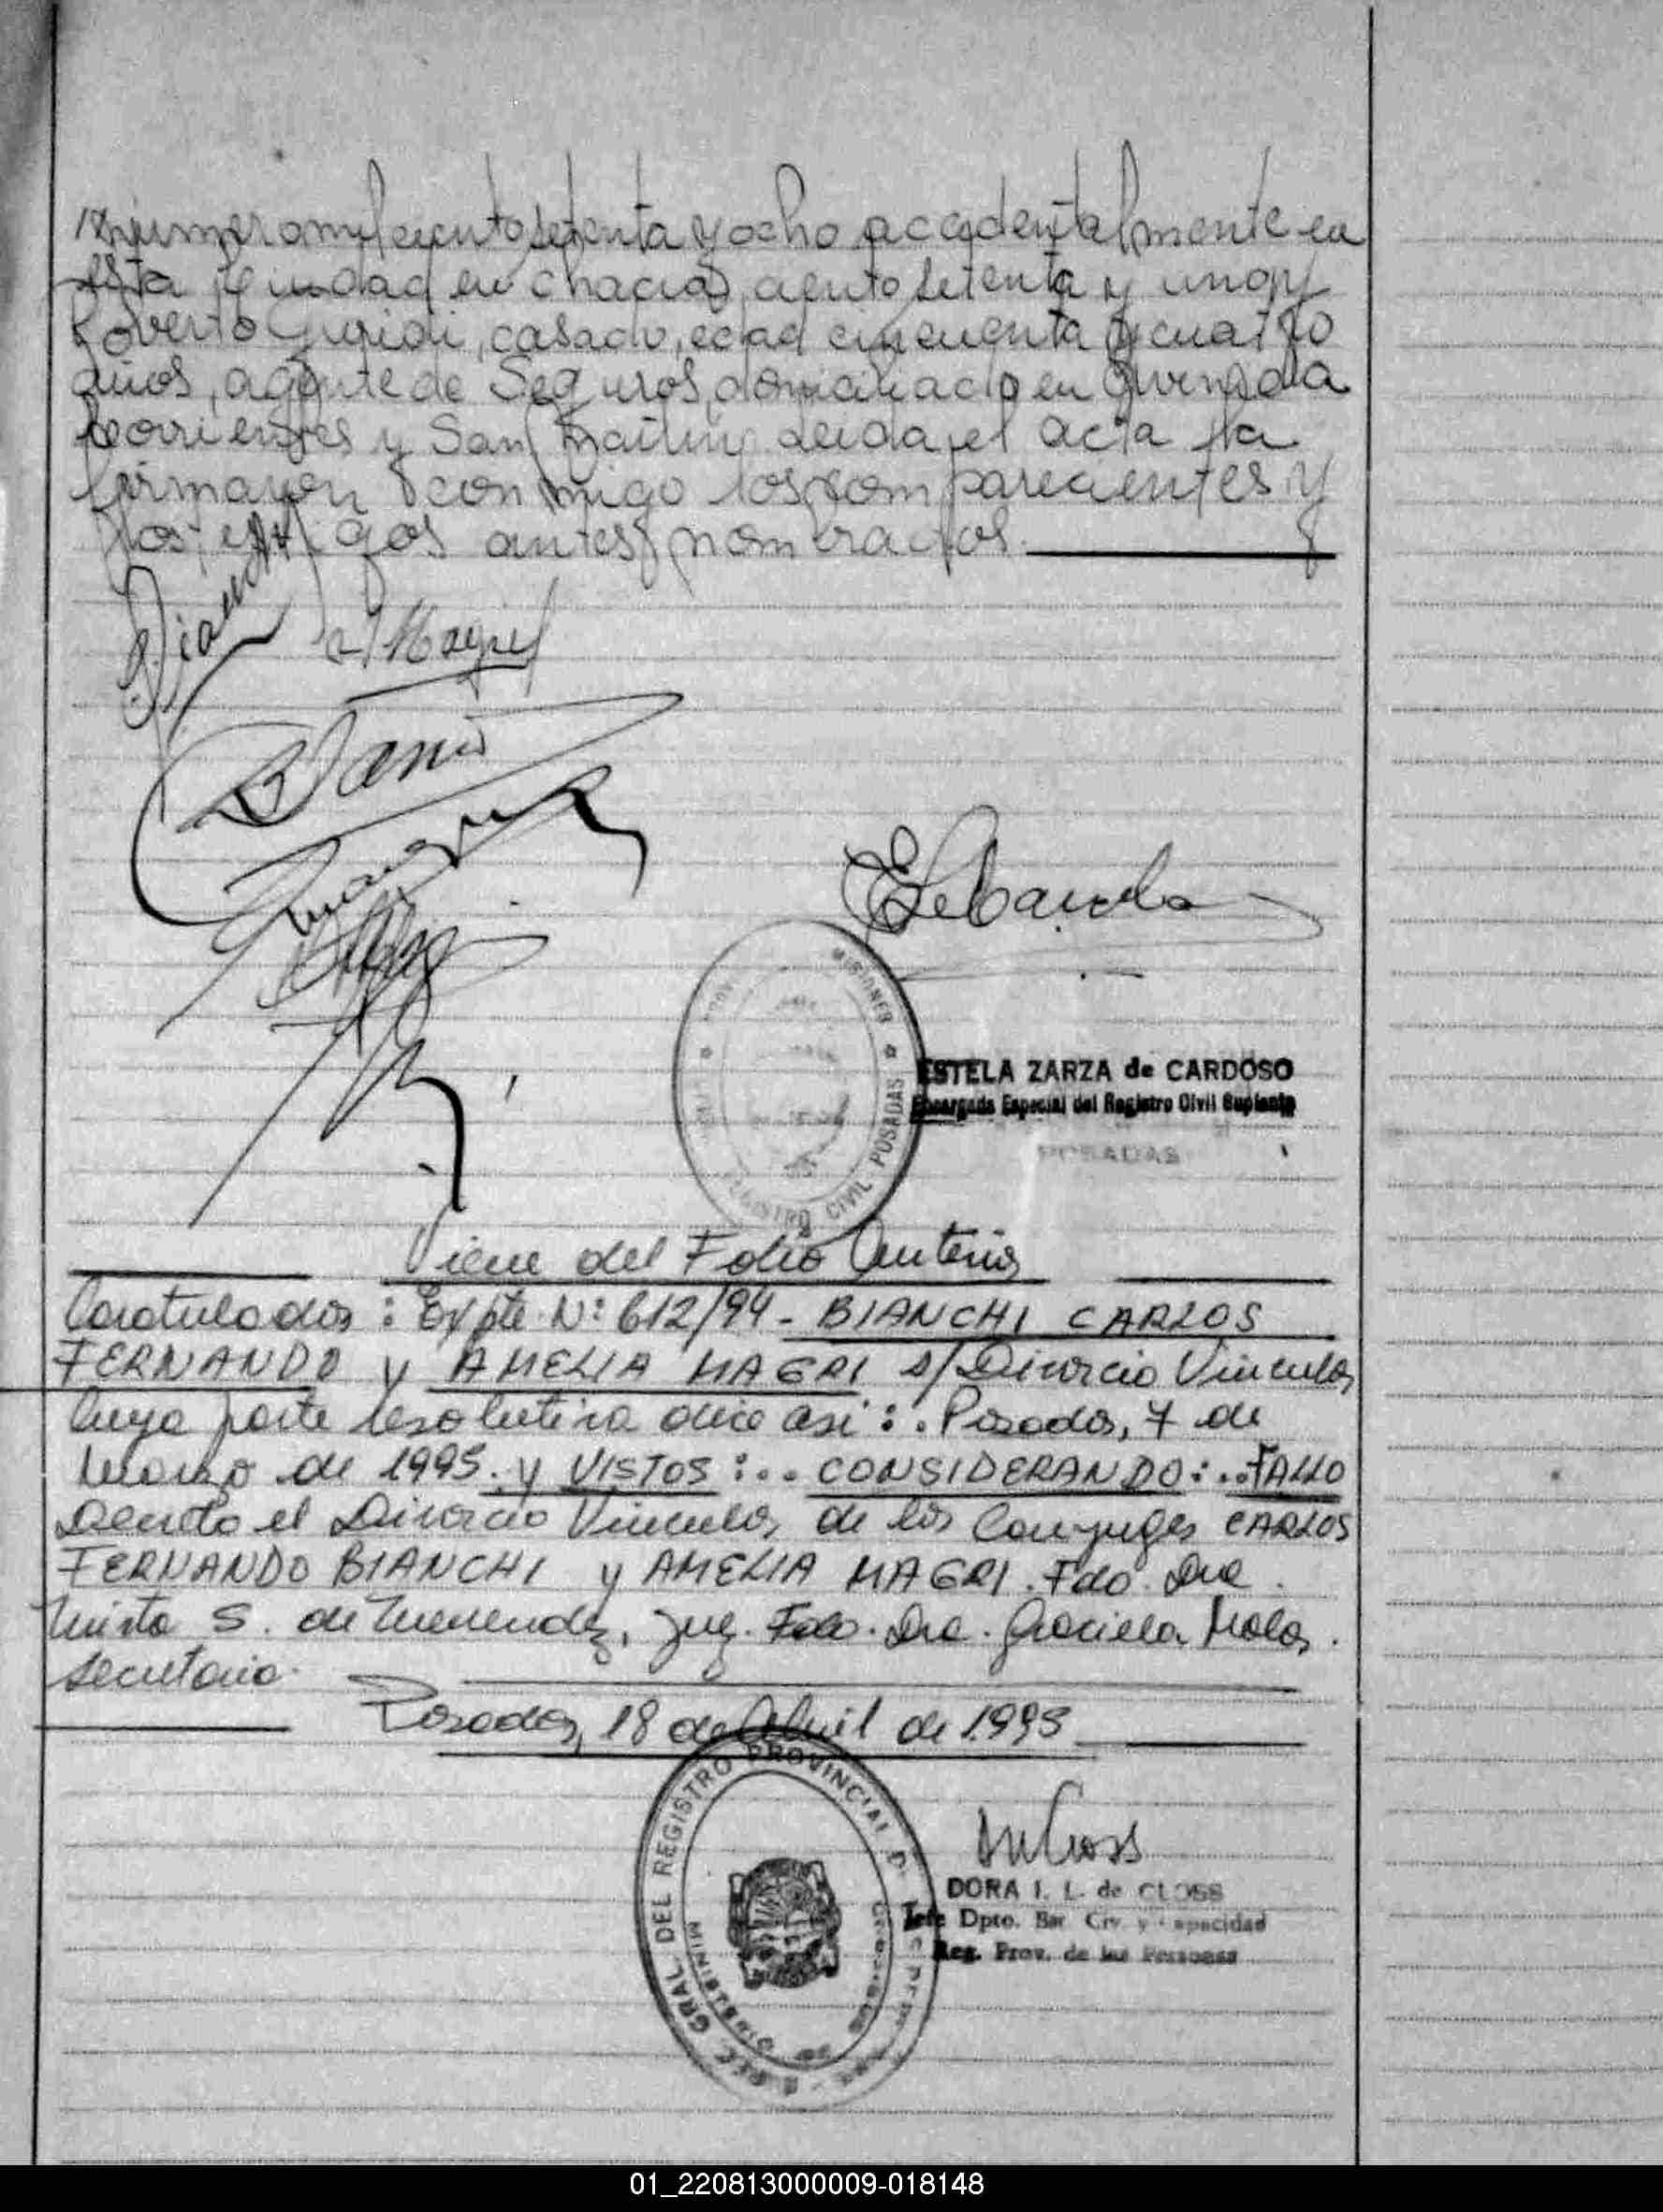 número mil ciento setenta y ocho accidentalmente en
esta ciudad en chacra ciento setenta y uno y
Roberto casado, edad cincuenta y cuatro
años, agente de Seguros, domiciliado en Avenida
Corrientes y San Martín. Leida el acta la
firmaron conmigo los comparecientes y
los testigos antes nombrados.
A Magri
MISIONES
REGISTRO CIVIL POSADAS
ESTELA ZARZA de CARDOSO
Encargada Especial del Registro Civil Suplente
POSADAS
Viene del Folio Anterior
Caratulados: Expte. Nº: 612/94 - BIANCHI CARLOS
FERNANDO y AMELIA MAGRI s/Divorcio Vincular
cuya parte resolutiva dice asi: . Posadas, 7 de
Marzo de 1995. y VISTOS:... CONSIDERANDO:..FALLO
Decreto el Divorcio Vincular de los Conyuges CARLOS
FERNANDO BIANCHI y AMELIA MAGRI. Fdo. Dra.
Mirta S. de Menendez, Juez. Fdo. Dra. Graciela
Secretaria.
Posadas, 18 de Abril de 1.995
GRAL DEL REGISTRO PROVINCIAL D
MINISTERIO DE
DORA I. L. de CLOSS
Jefe Dpto. Civ. y Capacidad
Reg. Prov. de las Personas
01_220813000009-018148